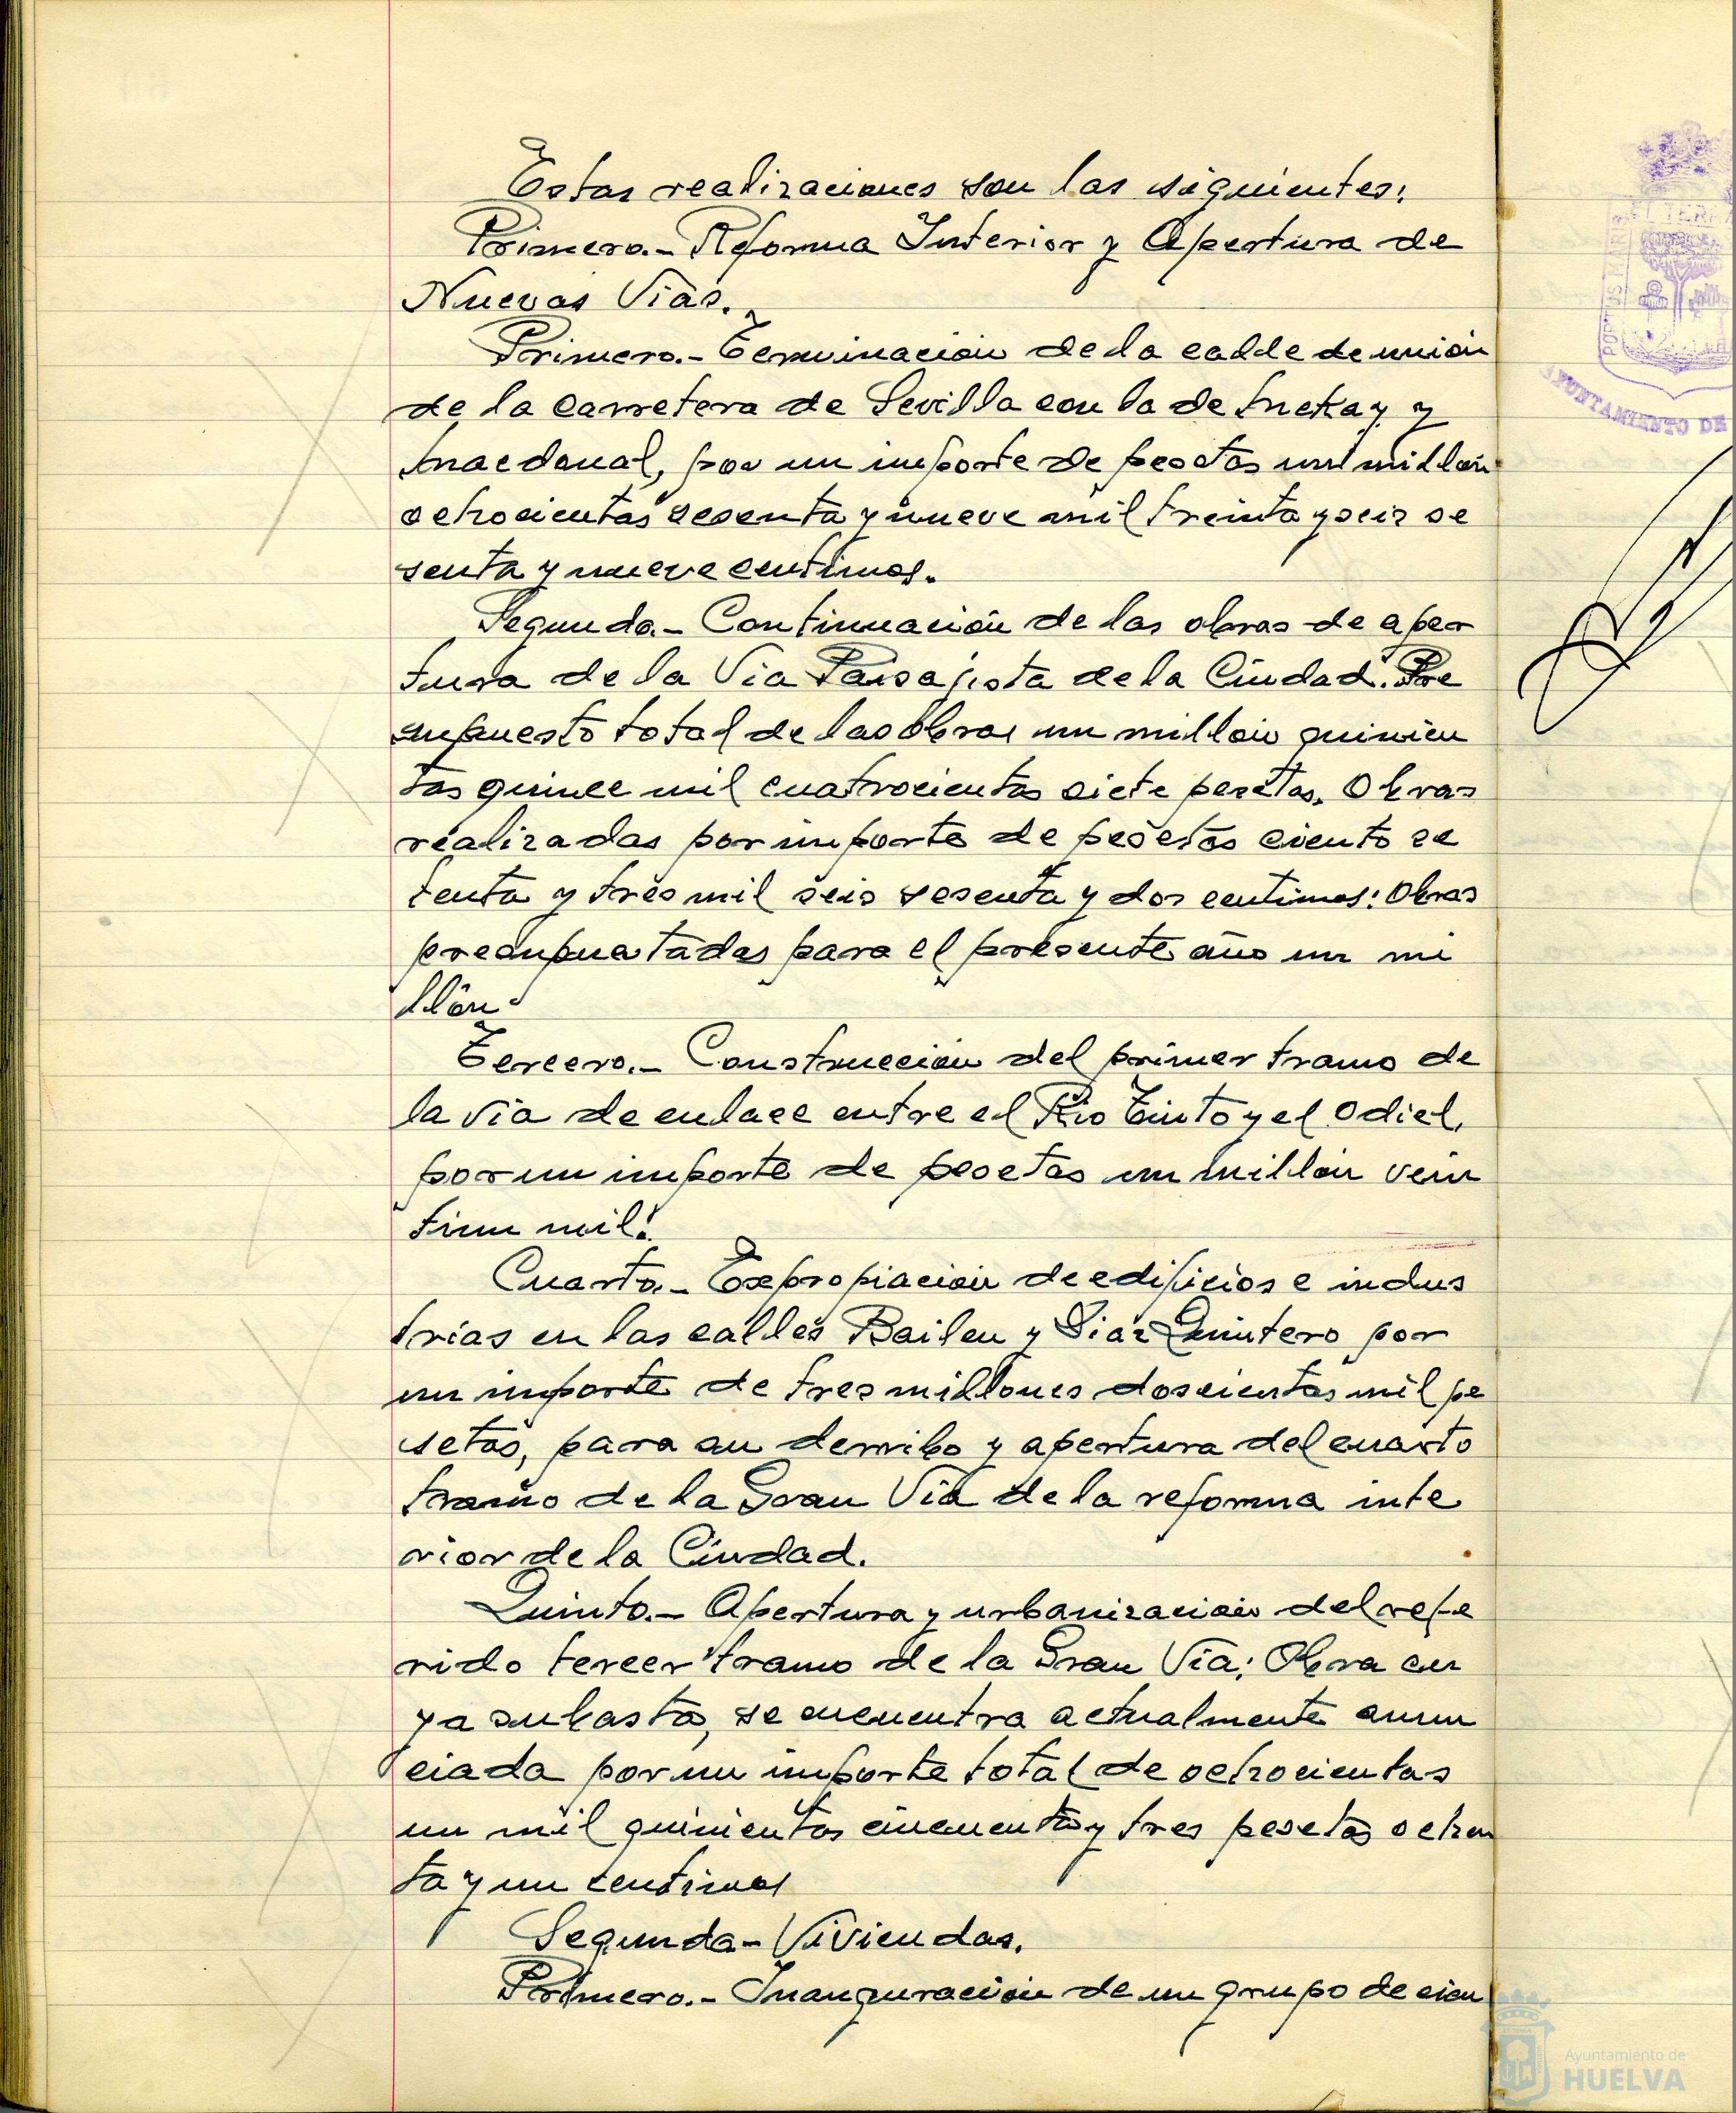 Estas realizaciones son las siguientes:
Primero.- Reforma Interior y Apertura de
Nuevas Vias.
Primero.- Terminacion de la calle de union
de la carretera de Sevilla con la de y
por un importe de pesetas un millon
ochocientas sesenta y nueve mil treinta y seis se
senta y nueve centimos.
Segundo.- Continuación de las obras de aper
tura de la Via Paisajista de la Ciudad. Pre
supuesto total de las obras un millon quinien
tas quince mil cuatrocientas siete pesetas. Obras
realizadas por importe de pesetas ciento se
tenta y tres mil seis sesenta y dos centimos: Obras
presupuestadas para el presente año un mi
llón.
Tercero.- Construccion del primer tramo de
la via de enlace entre el Rio Tinto y el Odiel,
por un importe de pesetas un millon vein
tiun mil.
Cuarto.- Expropiacion de edificios e indus
trias en las calles Bailen y Diaz Quintero por
un importe de tres millones doscientas mil pe
setas, para su derribo y apertura del cuarto
tramo de la Gran Via de la reforma inte
rior de la Ciudad.
Quinto.- Apertura y urbanizacion del refe
rido tercer tramo de la Gran Via; Obra cu
ya subasta, se encuentra actualmente anun
ciada por un importe total de ochocientas
un mil quinientas cincuenta y tres pesetas ochen
ta y un centimos
Segunda- Viviendas.
Primero.- Inauguracion de un grupo de cien
AYUNTAMIENTO DE
Ayuntamiento de
HUELVA